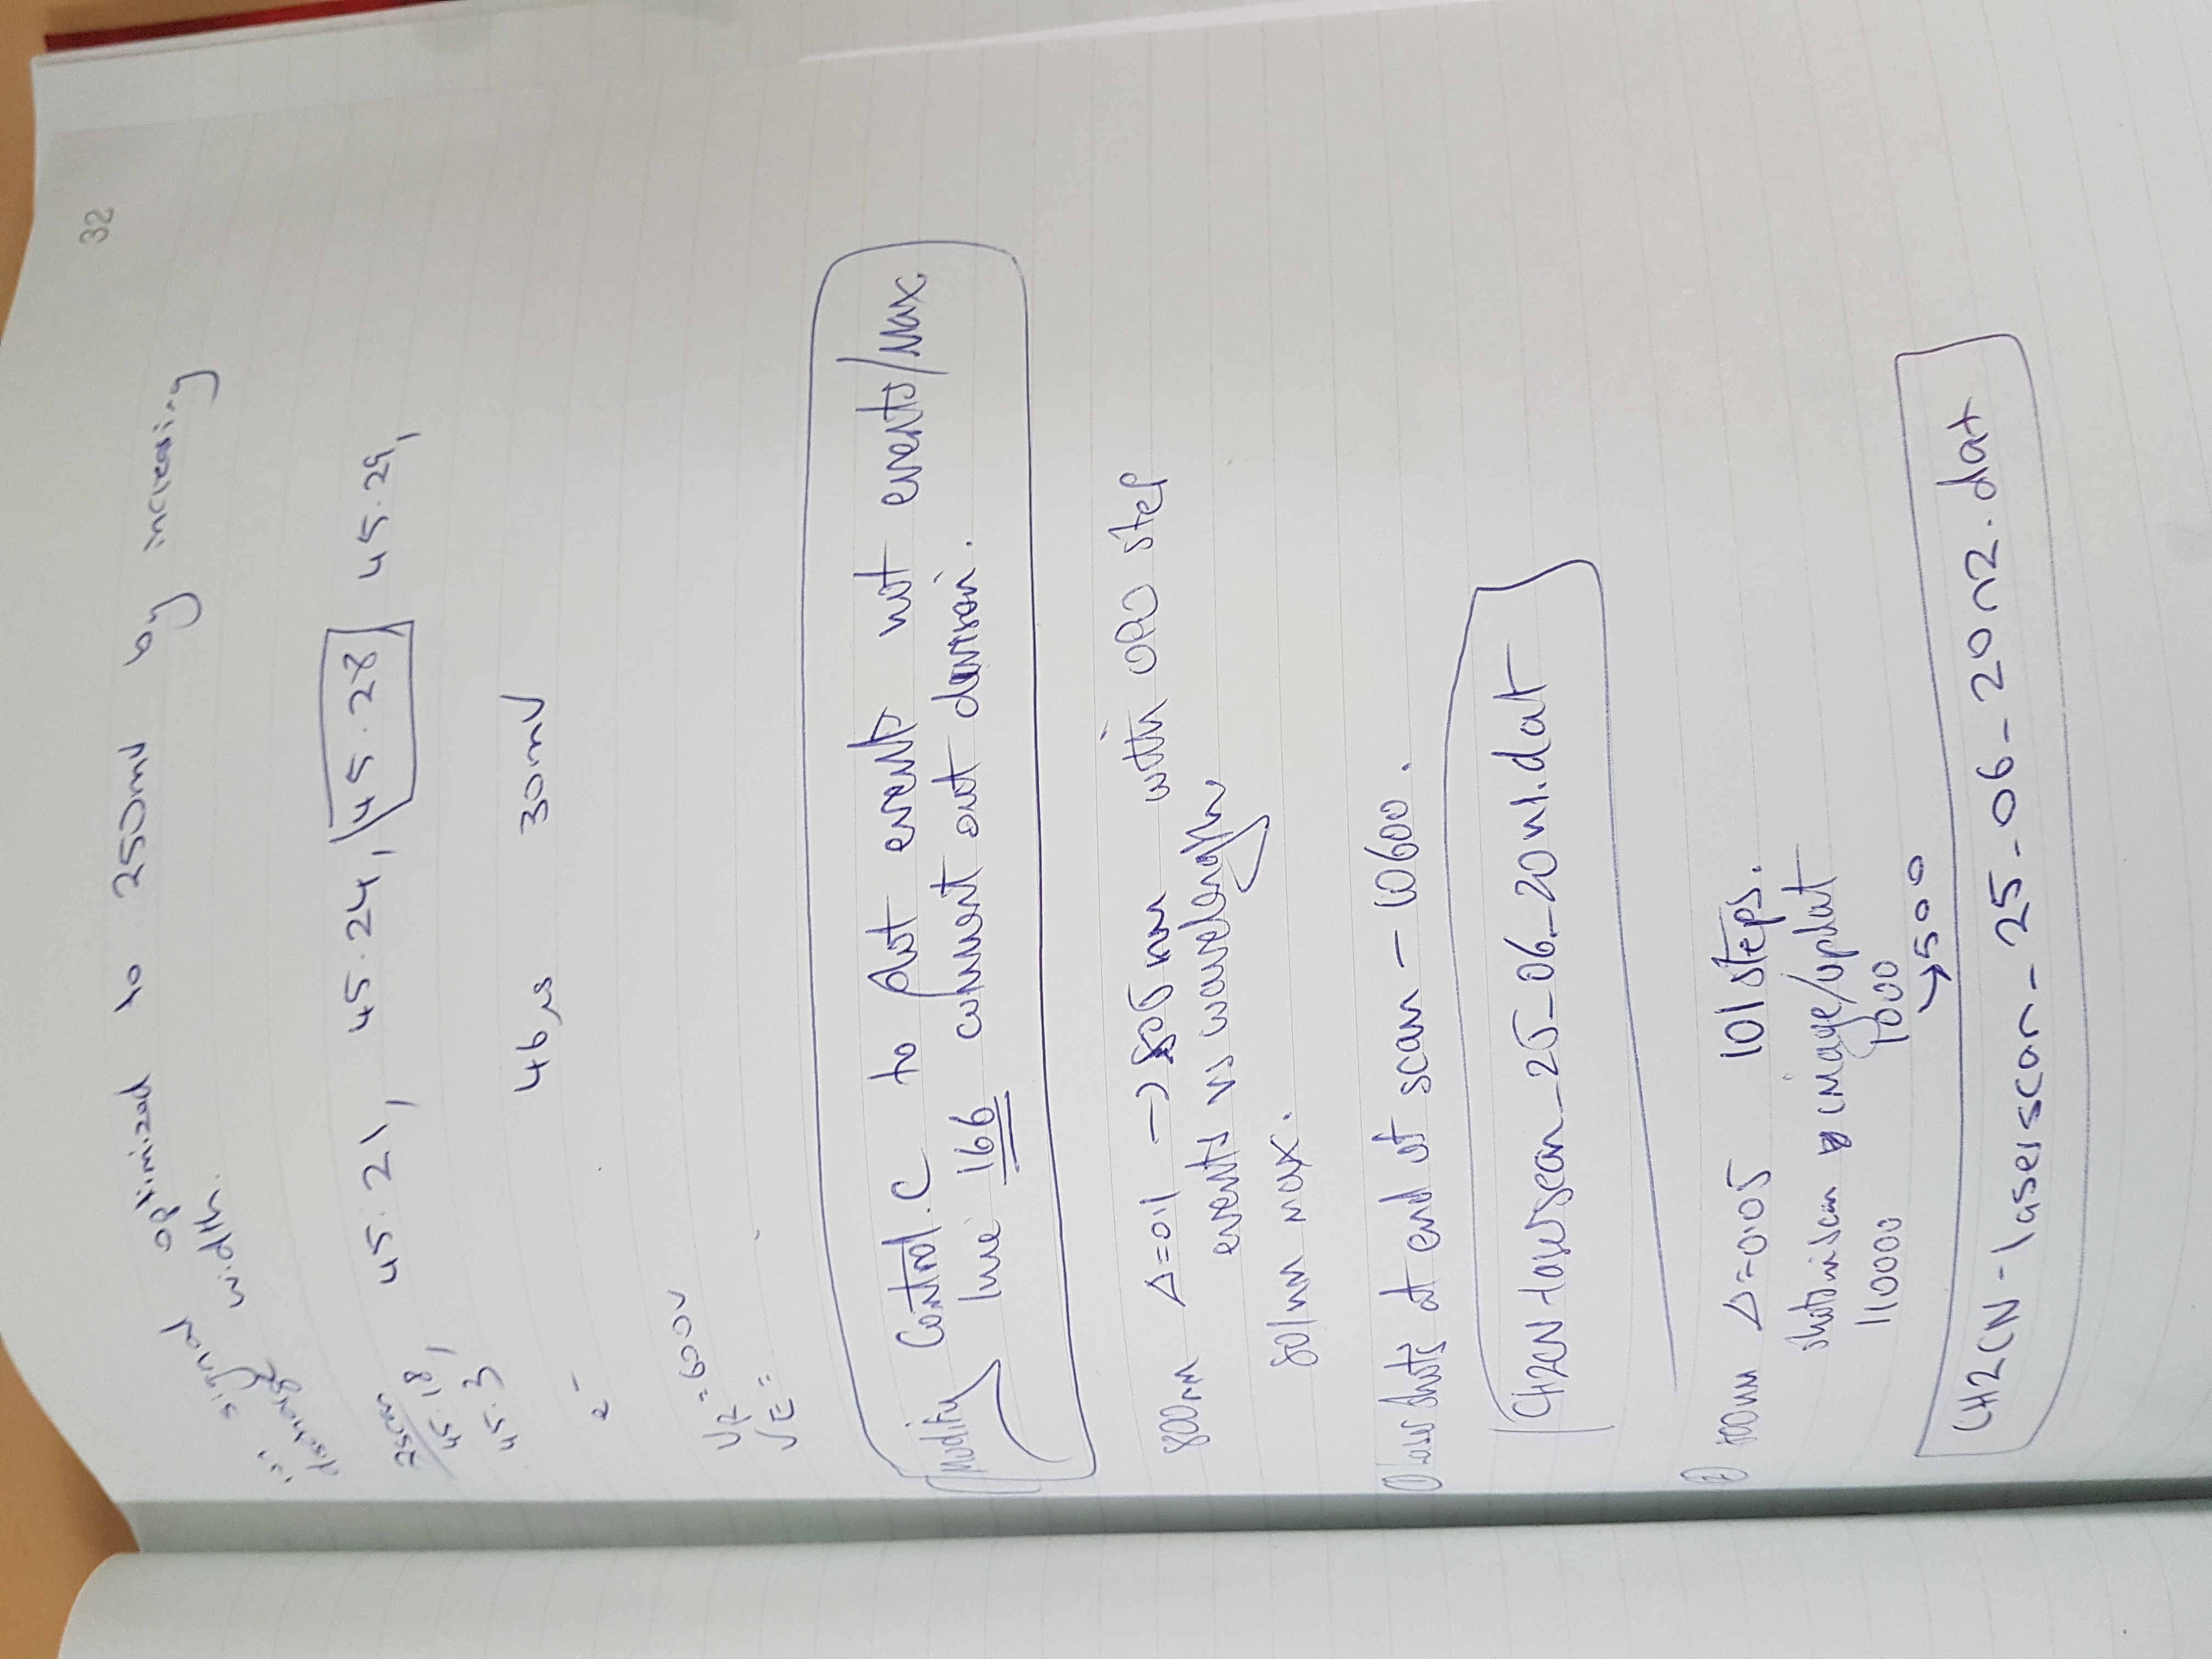 32
ion signal optimized to 250mV by increasing
discharge width.
45.18, 45.21, 45.24, 45.28, 45.29,
45.3
e⁻ 46μs 30mV
VR = 600V
VE =
Modify Control.C to plot events not events/Max.
line 166 comment out division.
800nm Δ=0.1 → 805nm with OPO step
events vs wavelength
801nm max.
① Laser shots at end of scan – 10600.
CH2CN-laserscan_25_06_20n1.dat
② 800nm Δ=0.05 101 steps.
shots in scan image/updat
110000 1000
↘500
CH2CN-laserscan_25-06-20n2.dat